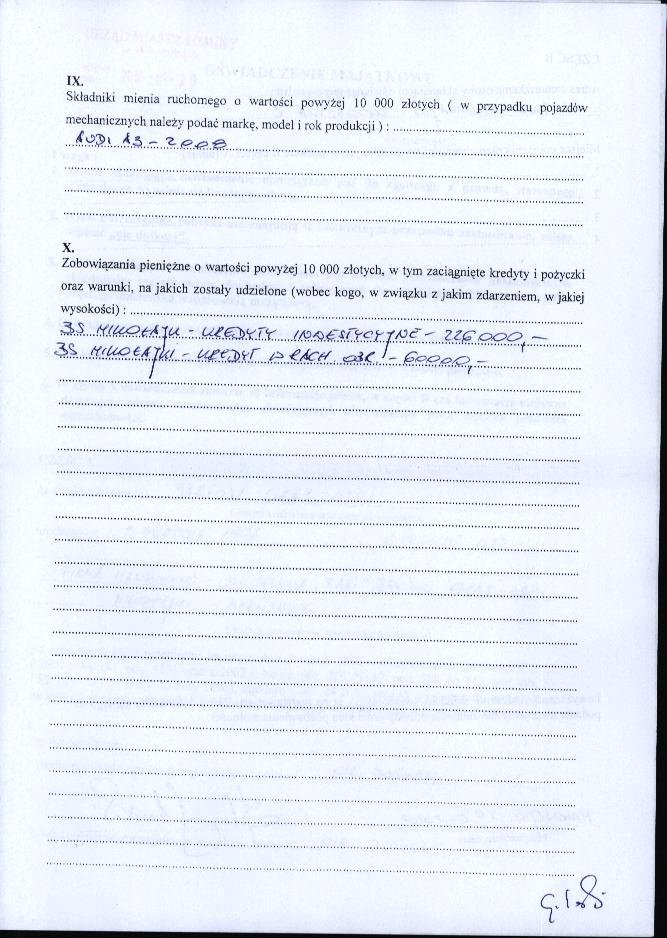 IX.
Składniki mienia ruchomego o wartości powyżej 10 000 złotych ( w przypadku pojazdów
mechanicznych należy podać markę, model i rok produkcji ) :
AUDI A3 - 2008
X.
Zobowiązania pieniężne o wartości powyżej 10 000 złotych, w tym zaciągnięte kredyty i pożyczki
oraz warunki, na jakich zostały udzielone (wobec kogo, w związku z jakim zdarzeniem, w jakiej
wysokości) :
BS MIKOŁAJKI - KREDYTY INWESTYCYJNE - 226 000,-
BS MIKOŁAJKI - KREDYT W RACH OBR - 60000,-